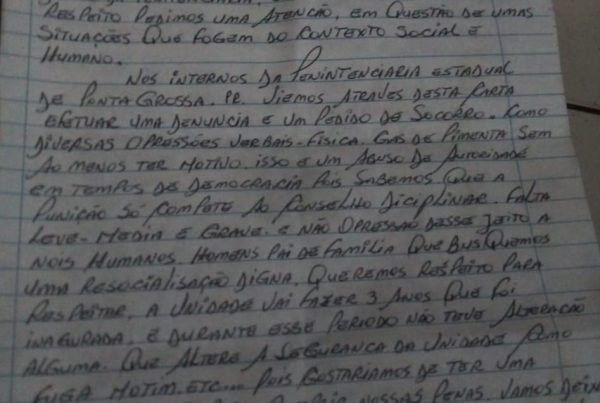 RESPEITO PEDIMOS UMA ATENÇÃO, EM QUESTÃO DE UMAS
SITUAÇÕES QUE FOGEM DO CONTEXTO SOCIAL E
HUMANO.
NOS INTERNOS DA PENINTENCIARIA ESTADUAL
DE PONTA GROSSA. PR. VIEMOS ATRAVES DESTA CARTA
EFETUAR UMA DENUNCIA E UM PEDIDO DE SOCORRO. COMO
DIVERSAS OPRESSÕES VERBAIS-FISICA. GAS DE PIMENTA SEM
AO MENOS TER MOTIVO. ISSO E UM ABUSO DE AUTORIDADE
EM TEMPOS DE DEMOCRACIA POIS SABEMOS QUE A
PUNIÇÃO SÓ COMPETE AO CONSELHO DICIPLINAR. FALTA
LEVE-MEDIA E GRAVE. E NÃO OPRESSÃO DESSE JEITO A
NOIS HUMANOS. HOMENS PAI DE FAMÍLIA QUE BUSQUEMOS
UMA RESOCIALISAÇÃO DIGNA. QUEREMOS RESPEITO PARA
RESPEITAR. A UNIDADE VAI FAZER 3 ANOS QUE FOI
INAGURADA. E DURANTE ESSE PERIODO NÃO TEVE ALTERAÇÃO
ALGUMA. QUE ALTERE A SEGURANCA DA UNIDADE COMO
FUGA MOTIM. ETC... POIS GOSTARIAMOS DE TER UMA
NOSSAS PENAS. VAMOS